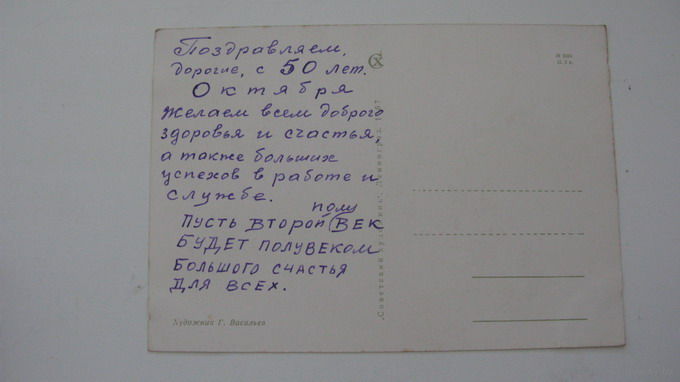 Поздравляем,
дорогие, с 50 лет.
Октября
Желаем всем доброго
здоровья и счастья,
а также больших
успехов в работе и
службе.
полу
Пусть второй век
будет полувеком
большого счастья
для всех.
Художник Г. Васильев
„Советский художник" Ленинград. 1967
Ц. 3 к.